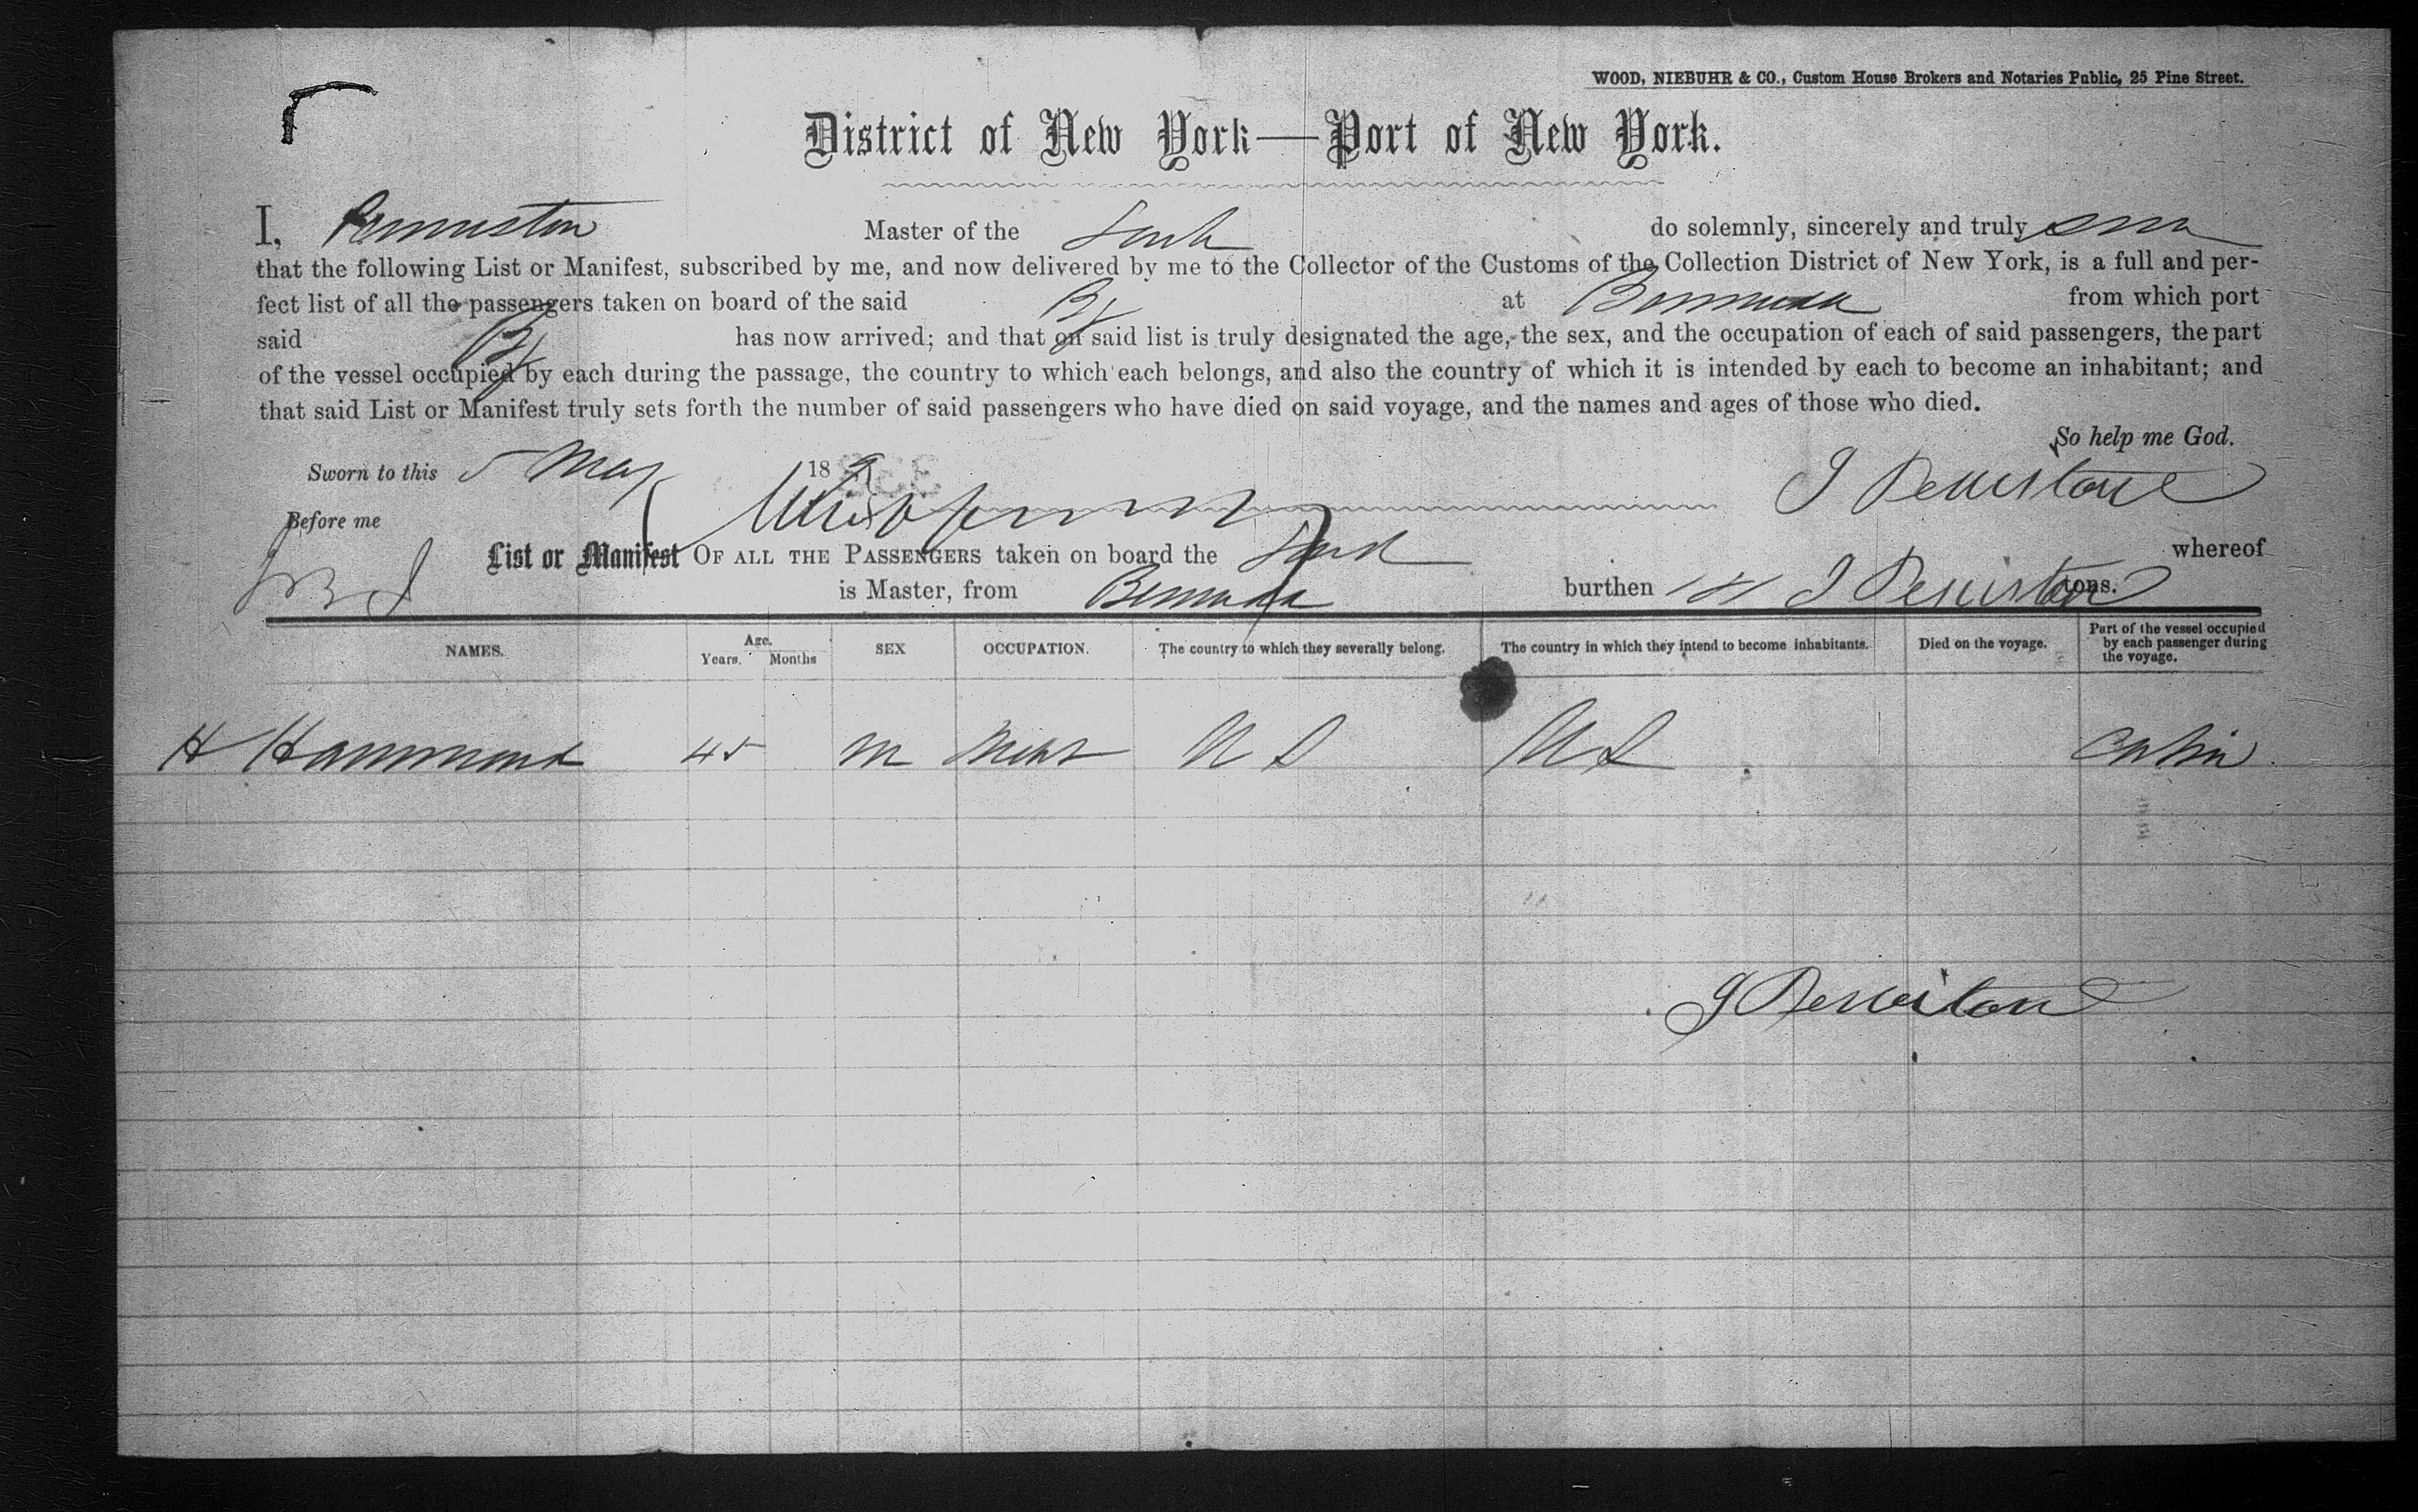 WOOD, NIEBUHR & CO., Custom House Brokers and Notaries Public, 25 Pine Street.
District of New York—Port of New York.
I, Penniston Master of the do solemnly, sincerely and truly
that the following List or Manifest, subscribed by me, and now delivered by me to the Collector of the Customs of the Collection District of New York, is a full and per-
fect list of all the passengers taken on board of the said at Bermuda from which port
said has now arrived; and that on said list is truly designated the age, the sex, and the occupation of each of said passengers, the part
of the vessel occupied by each during the passage, the country to which each belongs, and also the country of which it is intended by each to become an inhabitant; and
that said List or Manifest truly sets forth the number of said passengers who have died on said voyage, and the names and ages of those who died.
So help me God.
Sworn to this 5 May 18 J Penistone
Before me
List or Manifest OF ALL THE PASSENGERS taken on board the whereof
is Master, from Bermuda burthen J Peniston tons.
NAMES. Age. Years. Months SEX OCCUPATION. The country to which they severally belong. The country in which they intend to become inhabitants. Died on the voyage. Part of the vessel occupied by each passenger during the voyage.
H Hammond 45 M Mcht U S U S Cabin
J Peniston